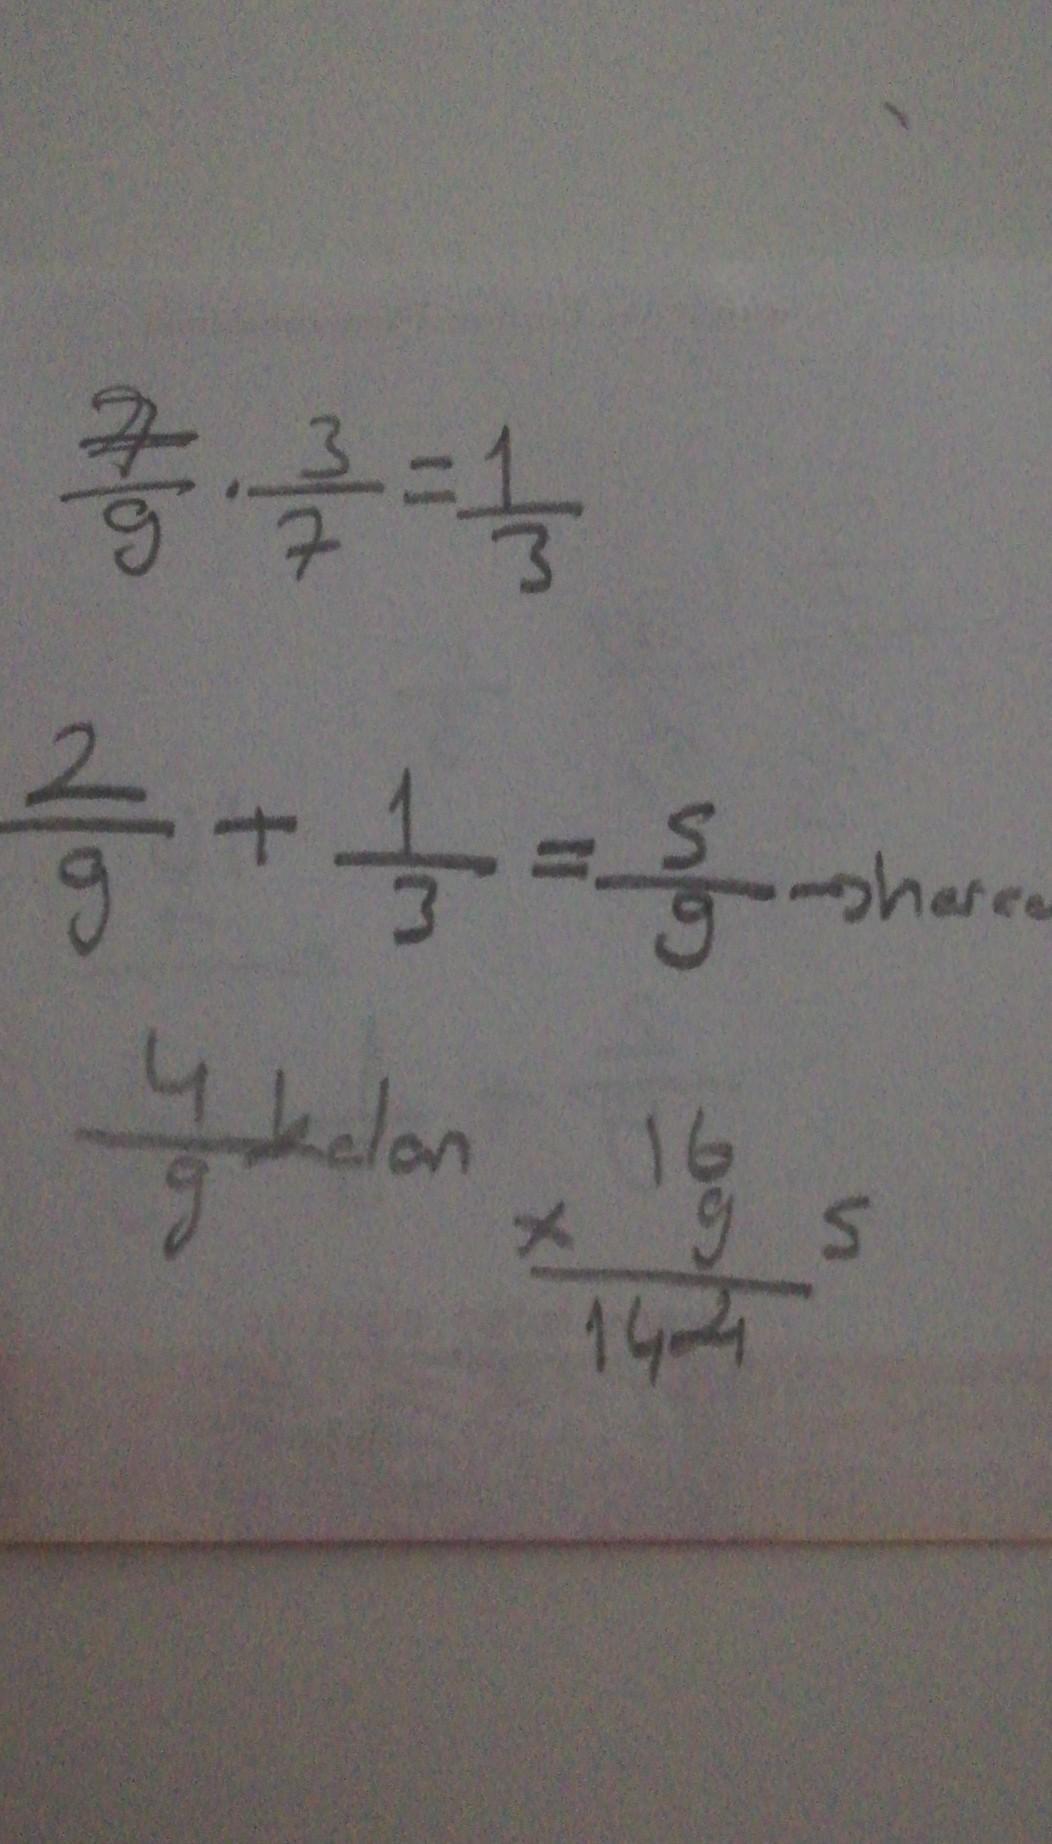 7/9 . 3/7 = 1/3
2/9 + 1/3 = 5/9 →harca
4/9 kalan
16
x 9 5
144